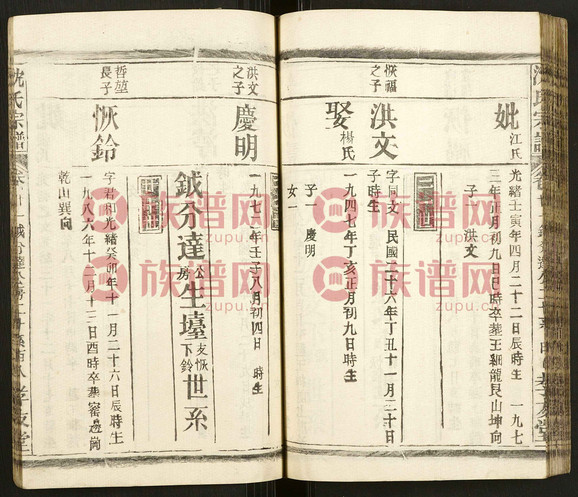 妣江氏
光緒壬寅年四月二十二日辰時生 一九七
三年正月初九日巳時卒葬王細龍艮山坤向
子 洪文
恢福之子
洪文
娶楊氏
字同文 民國二十六年丁丑十一月二十日
子時生
一九四七年丁亥正月初九日時生
子一 慶明
女一
洪文之子
慶明
一九七二年壬子八月初四日 時生
鉞分達公房生壹支恢鈴下世系
哲堃長子
恢鈴
字君 光緒癸卯年十一月二十六日辰時生
一九八六年十二月十三日酉時卒葬窰邊崗
乾山巽向
沈氏宗譜
孝友堂
族谱网
zupu.cn